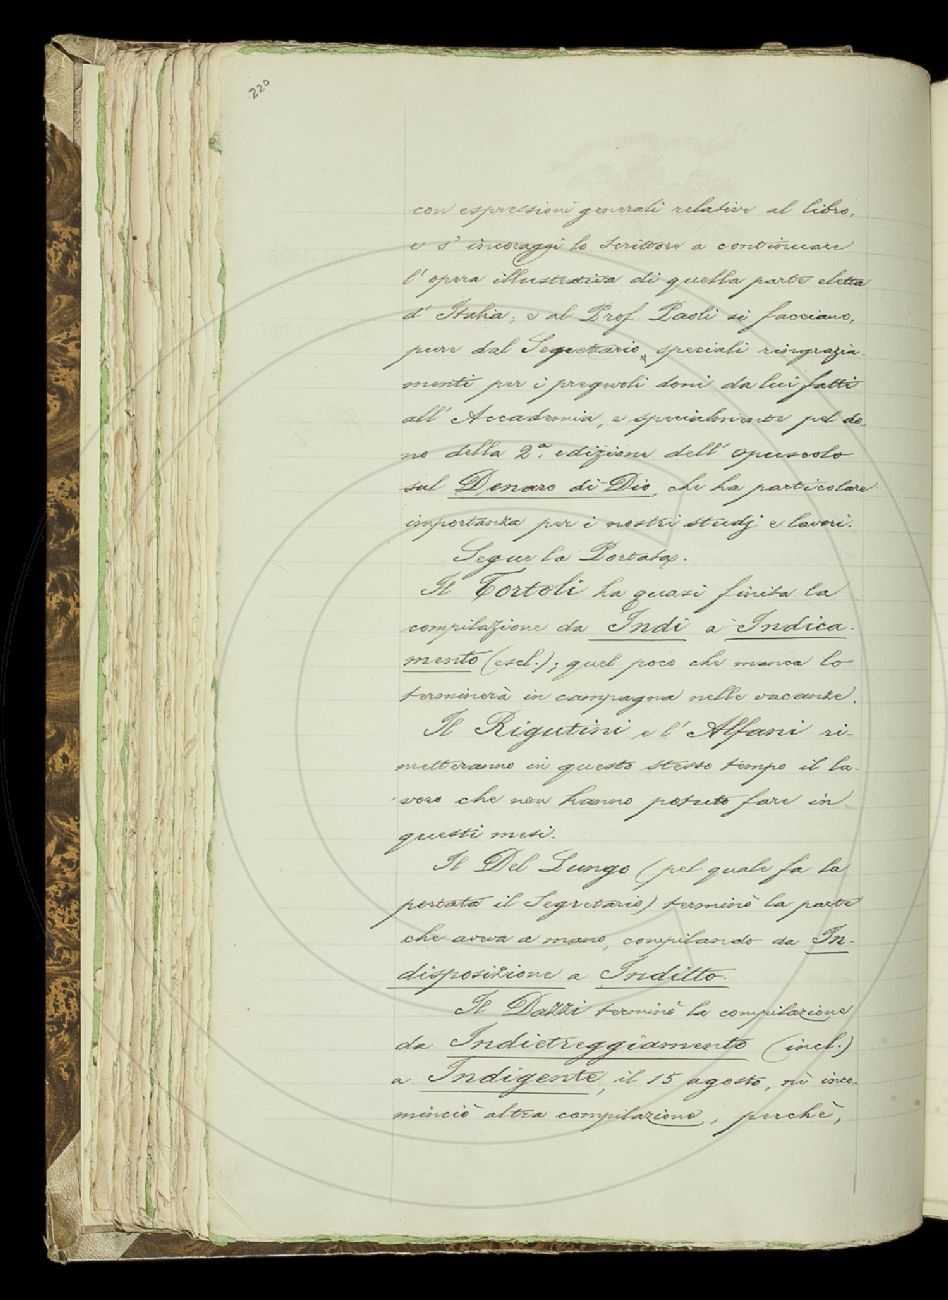 220
con espressioni generali relative al libro,
e s' incoraggi lo Scrittore a continuare
l' opera illustrativa di quella parte eletta
d' Italia; e al Prof. Paoli si facciano,
pure dal Segretario, speciali ringrazia
menti per i pregevoli doni da lui fatti
all' Accademia, e specialmente pel do
no della 2.ª edizione dell' opuscolo
sul Denaro di Dio, che ha particolare
importanza per i nostri studj e lavori.
Segue la Portata.
Il Tortoli ha quasi finita la
compilazione da Indi a Indica-
mento (escl.); quel poco che manca lo
terminerà in campagna nelle vacanze.
Il Rigutini e l' Alfani ri-
metteranno in questo stesso tempo il la-
voro che non hanno potuto fare in
questi mesi.
Il Del Lungo (pel quale fa la
portata il Segretario) terminò la parte
che aveva a mano, compilando da In-
disposizione a Inditto.
Il Dazzi terminò la compilazione
da Indietreggiamento (incl.)
a Indigente, il 15 agosto, nè inco-
minciò altra compilazione, perchè,